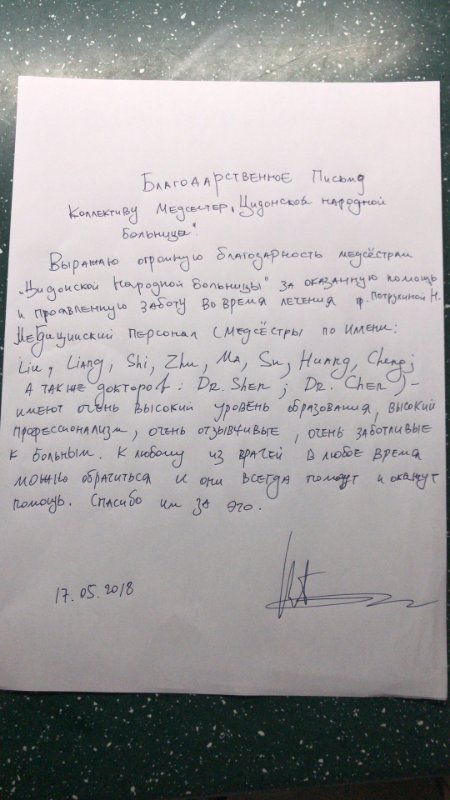 Благодарственное Письмо
Коллективу Медсестер, Цидонской народной
больницы".
Выражаю огромную благодарность медсёстрам
"Цидонской Народной больницы" за оказанную помощь
и проявленную заботу во время лечения гр. Петрукиной Н.
Медицинский персонал (медсёстры по имени:
Liu, Liang, Shi, Zhu, Ma, Su, Huang, Cheng;
а также докторов: Dr. Shen; Dr. Chen)-
имеют очень высокий уровень образования, высокий
профессионализм, очень отзывчивые, очень заботливые
к больным. К любому из врачей в любое время
можно обратиться и они всегда помогут и окажут
помощь. Спасибо им за это.
17.05.2018